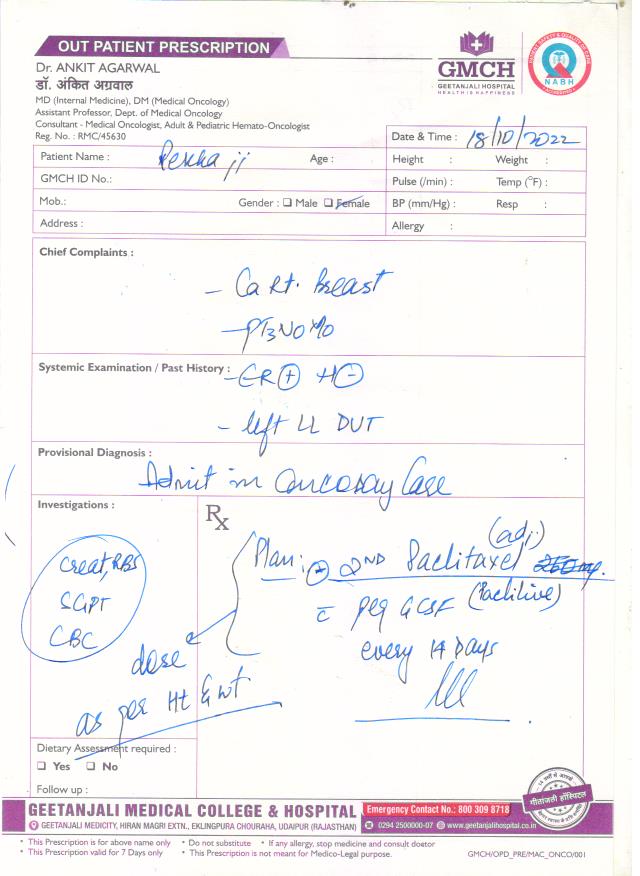 OUT PATIENT PRESCRIPTION
Dr. ANKIT AGARWAL
डॉ. अंकित अग्रवाल
MD (Internal Medicine), DM (Medical Oncology)
Assistant Professor, Dept. of Medical Oncology
Consultant - Medical Oncologist, Adult & Pediatric Hemato-Oncologist
Reg. No. : RMC/45630
GMCH
GEETANJALI HOSPITAL
HEALTH IS HAPPINESS
NABH
Date & Time : 18/10/2022
Patient Name : Rekha ji Age :
Height : Weight :
GMCH ID No.:
Pulse (/min) : Temp (°F) :
Mob.: Gender : ☐ Male ☐ Female
BP (mm/Hg) : Resp :
Address :
Allergy :
Chief Complaints :
- Ca Rt. Breast
- pT3N0M0
Systemic Examination / Past History : - ER⊕ H⊖
- left LL DVT
Provisional Diagnosis :
Admit in Oncoday Care
Investigations :
Creat, RBS
SGPT
CBC
Rx
(adj.)
Plan: ⊕ 2ND Paclitaxel
c̄ peg GCSF (Paclilive)
every 14 Days
dose
as per Ht & wt
Dietary Assessment required :
☐ Yes ☐ No
Follow up :
गीतांजली हॉस्पिटल
GEETANJALI MEDICAL COLLEGE & HOSPITAL
Emergency Contact No.: 800 309 8718
GEETANJALI MEDICITY, HIRAN MAGRI EXTN., EKLINGPURA CHOURAHA, UDAIPUR (RAJASTHAN)
0294 2500000-07 www.geetanjalihospital.co.in
• This Prescription is for above name only • Do not substitute • If any allergy, stop medicine and consult doctor
• This Prescription valid for 7 Days only • This Prescription is not meant for Medico-Legal purpose.
GMCH/OPD_PRE/MAC_ONCO/001